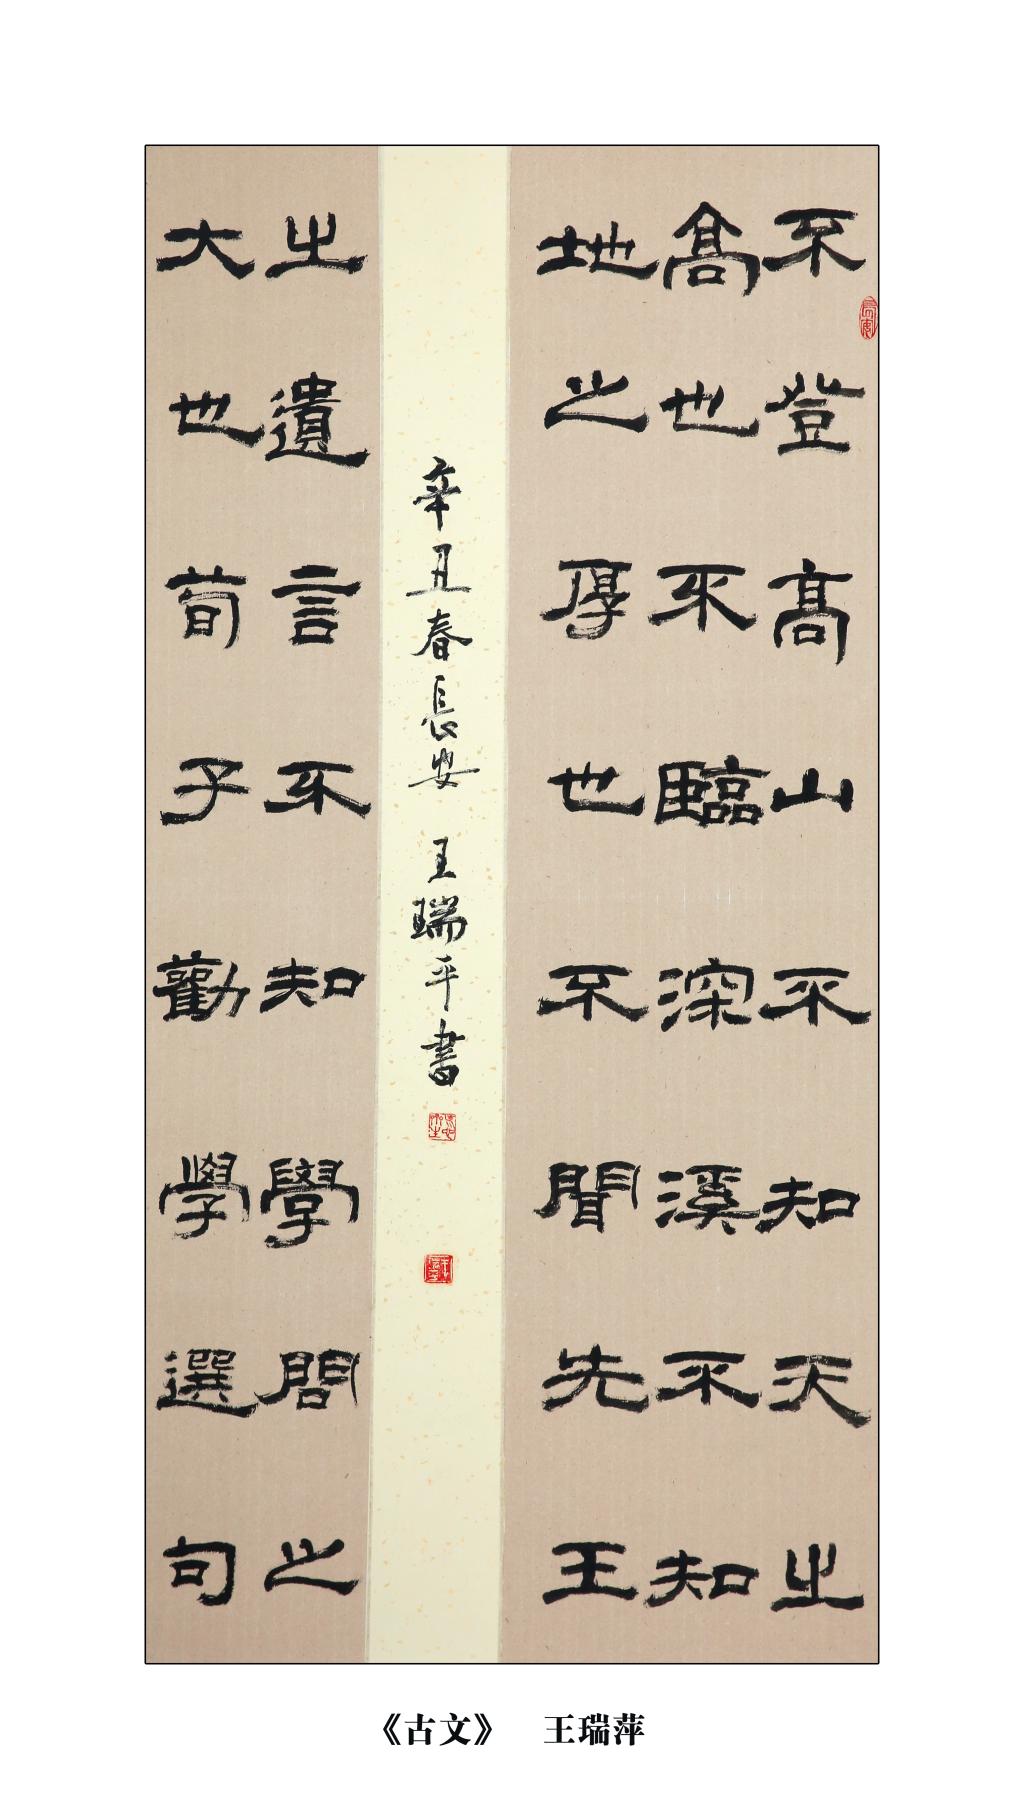 不登高山不知天之
高也不臨深溪不知
地之厚也不聞先王
之遺言不知學問之
大也荀子勸學選句
辛丑春長安 王瑞平書
《古文》 王瑞萍